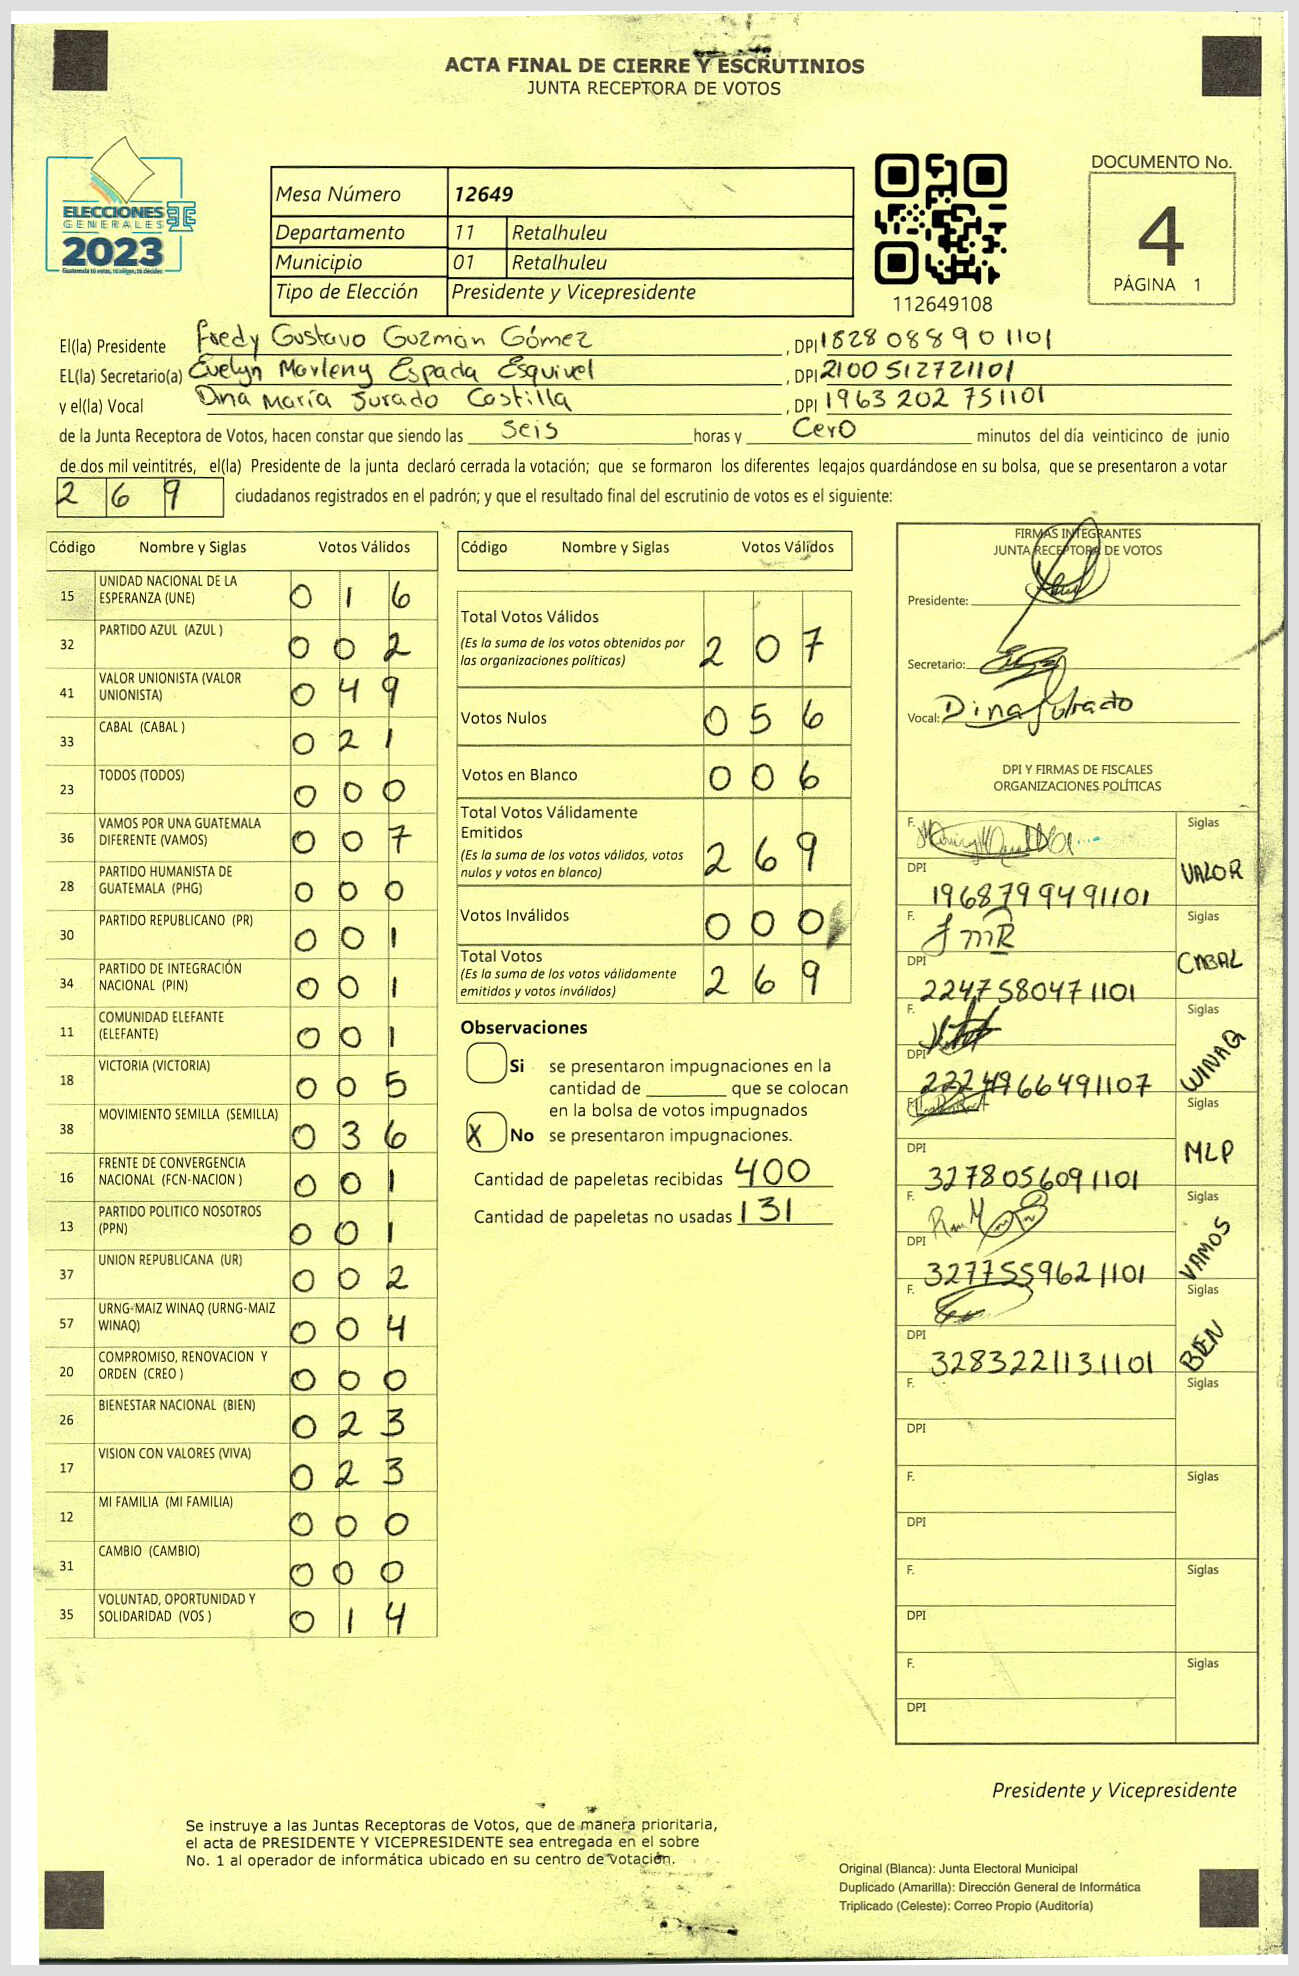 ACTA FINAL DE CIERRE Y ESCRUTINIOS
JUNTA RECEPTORA DE VOTOS
ELECCIONES
GENERALES
2023
Guatemala tú votas, tú eliges, tú decides
Mesa Número 12649
Departamento 11 Retalhuleu
Municipio 01 Retalhuleu
Tipo de Elección Presidente y Vicepresidente
112649108
DOCUMENTO No.
4
PÁGINA 1
El(la) Presidente Fredy Gustavo Guzmán Gómez, DPI 1828088901101
EL(la) Secretario(a) Evelyn Marleny Espada Esquivel, DPI 2100512721101
y el(la) Vocal Dina María Jurado Castilla, DPI 1963 202 751101
de la Junta Receptora de Votos, hacen constar que siendo las seis horas y cero minutos del día veinticinco de junio
de dos mil veintitrés, el(la) Presidente de la junta declaró cerrada la votación; que se formaron los diferentes legajos guardándose en su bolsa, que se presentaron a votar
2 6 9 ciudadanos registrados en el padrón; y que el resultado final del escrutinio de votos es el siguiente:
Código Nombre y Siglas Votos Válidos
15 UNIDAD NACIONAL DE LA ESPERANZA (UNE) 0 1 6
32 PARTIDO AZUL (AZUL ) 0 0 2
41 VALOR UNIONISTA (VALOR UNIONISTA) 0 4 9
33 CABAL (CABAL ) 0 2 1
23 TODOS (TODOS) 0 0 0
36 VAMOS POR UNA GUATEMALA DIFERENTE (VAMOS) 0 0 7
28 PARTIDO HUMANISTA DE GUATEMALA (PHG) 0 0 0
30 PARTIDO REPUBLICANO (PR) 0 0 1
34 PARTIDO DE INTEGRACIÓN NACIONAL (PIN) 0 0 1
11 COMUNIDAD ELEFANTE (ELEFANTE) 0 0 1
18 VICTORIA (VICTORIA) 0 0 5
38 MOVIMIENTO SEMILLA (SEMILLA) 0 3 6
16 FRENTE DE CONVERGENCIA NACIONAL (FCN-NACION ) 0 0 1
13 PARTIDO POLITICO NOSOTROS (PPN) 0 0 1
37 UNION REPUBLICANA (UR) 0 0 2
57 URNG-MAIZ WINAQ (URNG-MAIZ WINAQ) 0 0 4
20 COMPROMISO, RENOVACION Y ORDEN (CREO ) 0 0 0
26 BIENESTAR NACIONAL (BIEN) 0 2 3
17 VISION CON VALORES (VIVA) 0 2 3
12 MI FAMILIA (MI FAMILIA) 0 0 0
31 CAMBIO (CAMBIO) 0 0 0
35 VOLUNTAD, OPORTUNIDAD Y SOLIDARIDAD (VOS ) 0 1 4
Código Nombre y Siglas Votos Válidos
Total Votos Válidos 2 0 7
(Es la suma de los votos obtenidos por
las organizaciones políticas)
Votos Nulos 0 5 6
Votos en Blanco 0 0 6
Total Votos Válidamente
Emitidos 2 6 9
(Es la suma de los votos válidos, votos
nulos y votos en blanco)
Votos Inválidos 0 0 0
Total Votos 2 6 9
(Es la suma de los votos válidamente
emitidos y votos inválidos)
Observaciones
Si se presentaron impugnaciones en la
cantidad de ________ que se colocan
en la bolsa de votos impugnados
X No se presentaron impugnaciones.
Cantidad de papeletas recibidas 400
Cantidad de papeletas no usadas 131
FIRMAS INTEGRANTES
JUNTA RECEPTORA DE VOTOS
Presidente:
Secretario:
Vocal: Dina Jurado
DPI Y FIRMAS DE FISCALES
ORGANIZACIONES POLÍTICAS
F. Siglas
DPI 1968799491101 VALOR
F. Siglas
DPI 2247580471101 CABAL
F. Siglas
DPI WINAQ
F. Siglas
DPI 3278056091101 MLP
F. Siglas
DPI 3277559621101 VAMOS
F. Siglas
DPI 3283221131101 BIEN
F. Siglas
DPI
F. Siglas
DPI
F. Siglas
DPI
F. Siglas
DPI
Presidente y Vicepresidente
Se instruye a las Juntas Receptoras de Votos, que de manera prioritaria,
el acta de PRESIDENTE Y VICEPRESIDENTE sea entregada en el sobre
No. 1 al operador de informática ubicado en su centro de votación.
Original (Blanca): Junta Electoral Municipal
Duplicado (Amarilla): Dirección General de Informática
Triplicado (Celeste): Correo Propio (Auditoría)